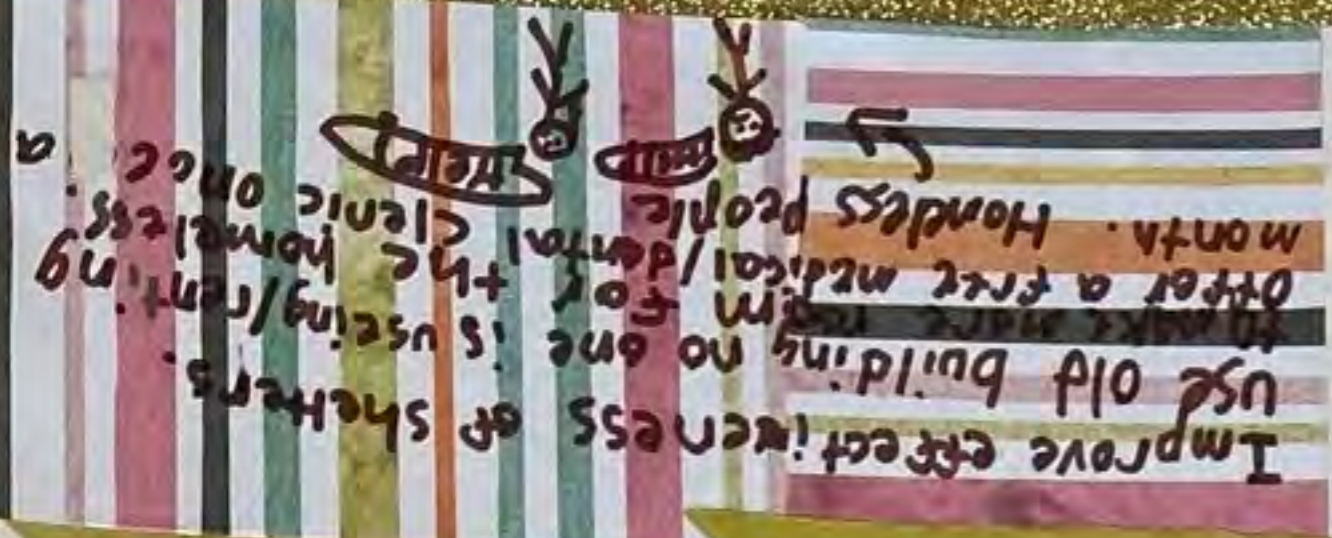 Improve effectiveness of shelters.
Use old building no one is useing/renting
to make more room for the homeless.
Offer a free medical/dental clenic once a
month. Homeless people
Help